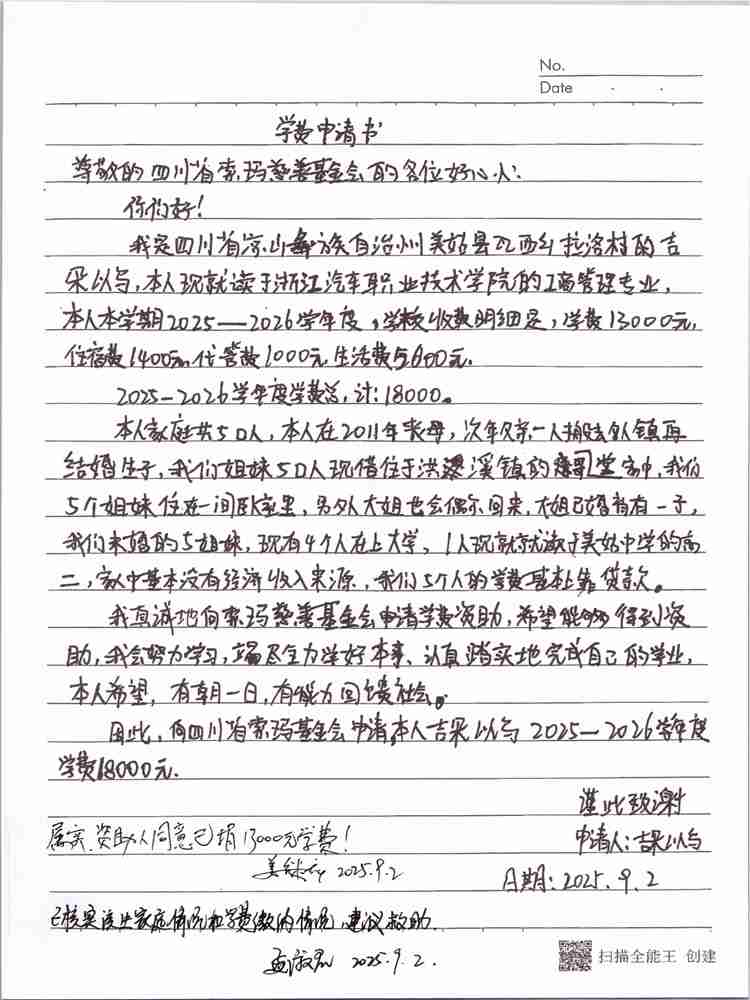 No.
Date
学费申请书
尊敬的四川省索玛慈善基金会的各位好心人:
你们好!
我是四川省凉山彝族自治州美姑县瓦西乡拉洛村的吉
朵以与,本人现就读于浙江汽车职业技术学院的工商管理专业,
本人本学期2025—2026学年度,学校收费明细是,学费13000元,
住宿费1400元代管费1000元生活费5600元.
2025-2026学年度学费总,计:18000。
本人家庭共5口人,本人在2011年丧母,次年父亲一人搬去外镇再
结婚生子,我们姐妹5口人现借住于洪溪镇的 堂 家中,我们
5个姐妹住在一间卧室里,另外大姐也会偶尔回来,大姐已婚育有一子,
我们未婚的5姐妹,现有4个人在上大学、1人现就就读于美姑中学的高
二,家中基本没有经济收入来源,我们5个人的学费基本上靠贷款。
我真诚地向索玛慈善基金会申请学费资助,希望能够得到资
助,我会努力学习,竭尽全力学好本事、认真踏实地完成自己的学业,
本人希望,有朝一日,有能力回馈社会。
因此,向四川省索玛基金会申请本人吉朵以与2025—2026学年度
学费18000元.
谨此致谢
属实,资助人同意已捐13000元学费!
申请人:吉朵以与
2025.9.2
日期:2025.9.2
已核实该生家庭情况和学费缴纳情况,建议救助.
2025.9.2.
扫描全能王 创建